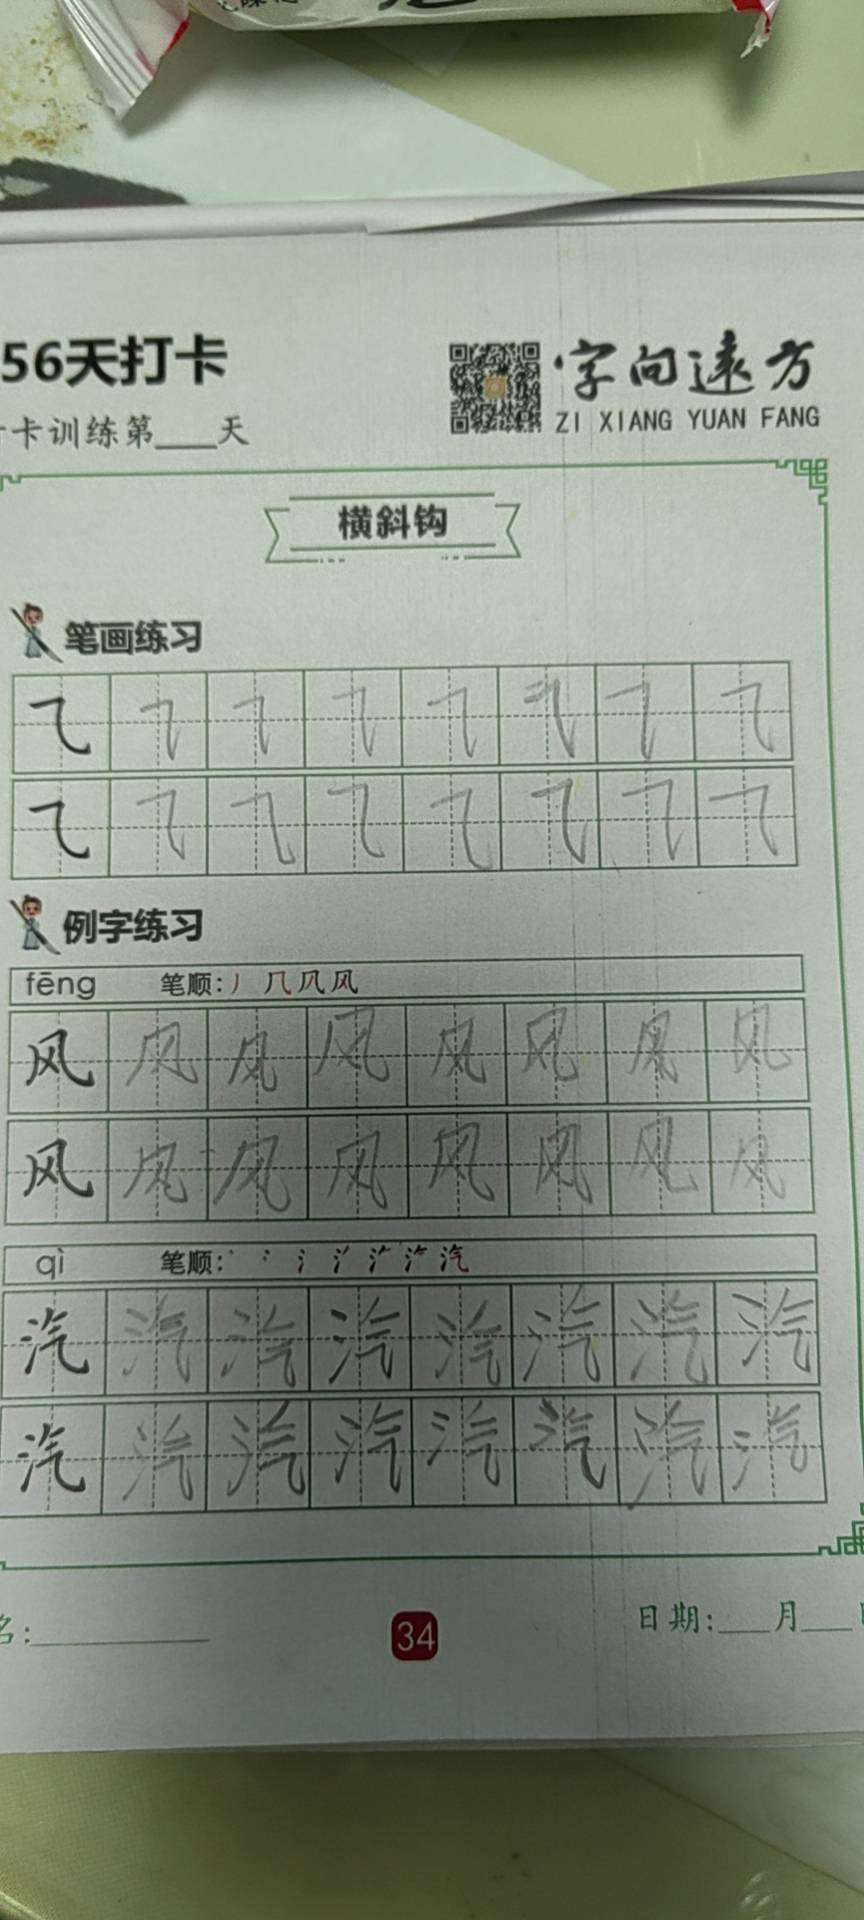 56天打卡
字向遠方
卡训练第____天
ZI XIANG YUAN FANG
横斜钩
笔画练习
⺄
⺄
例字练习
fēng 笔顺:丿 几 风 风
风 风 风 风 风 风 风 风
风 风 风 风 风 风 风 风
qì 笔顺:
汽
汽 汽 汽 汽 汽 汽 汽 汽
汽 汽 汽 汽 汽 汽 汽 汽
名:
34
日期:___月___